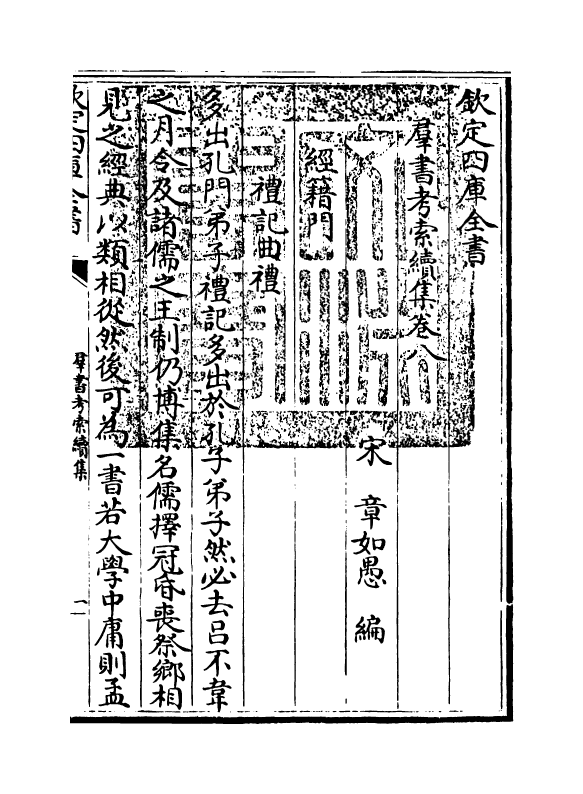 欽定四庫全書
羣書考索續集卷八
宋　章如愚　編
經籍門
禮記曲禮
多出孔門弟子禮記多出於孔子弟子然必去吕不韋
之月令及諸儒之王制仍博集名儒擇冠昏喪祭鄉相
見之經典以類相從然後可為一書若大學中庸則孟
欽定四庫全書
羣書考索續集
一